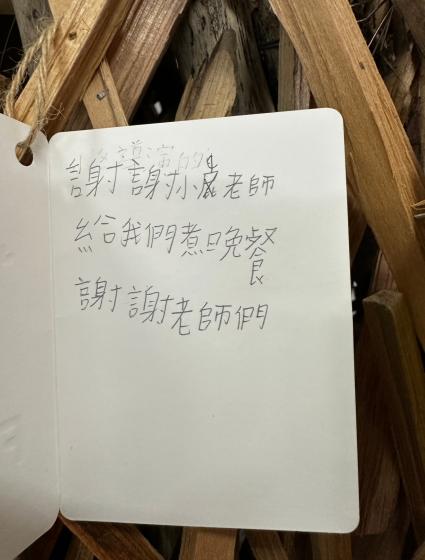 謝謝小鹿老師
給我們煮晚餐
謝謝老師們